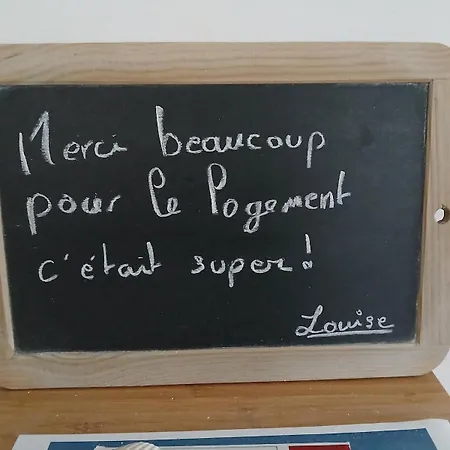 Merci beaucoup
pour le logement
c'était super!
Louise